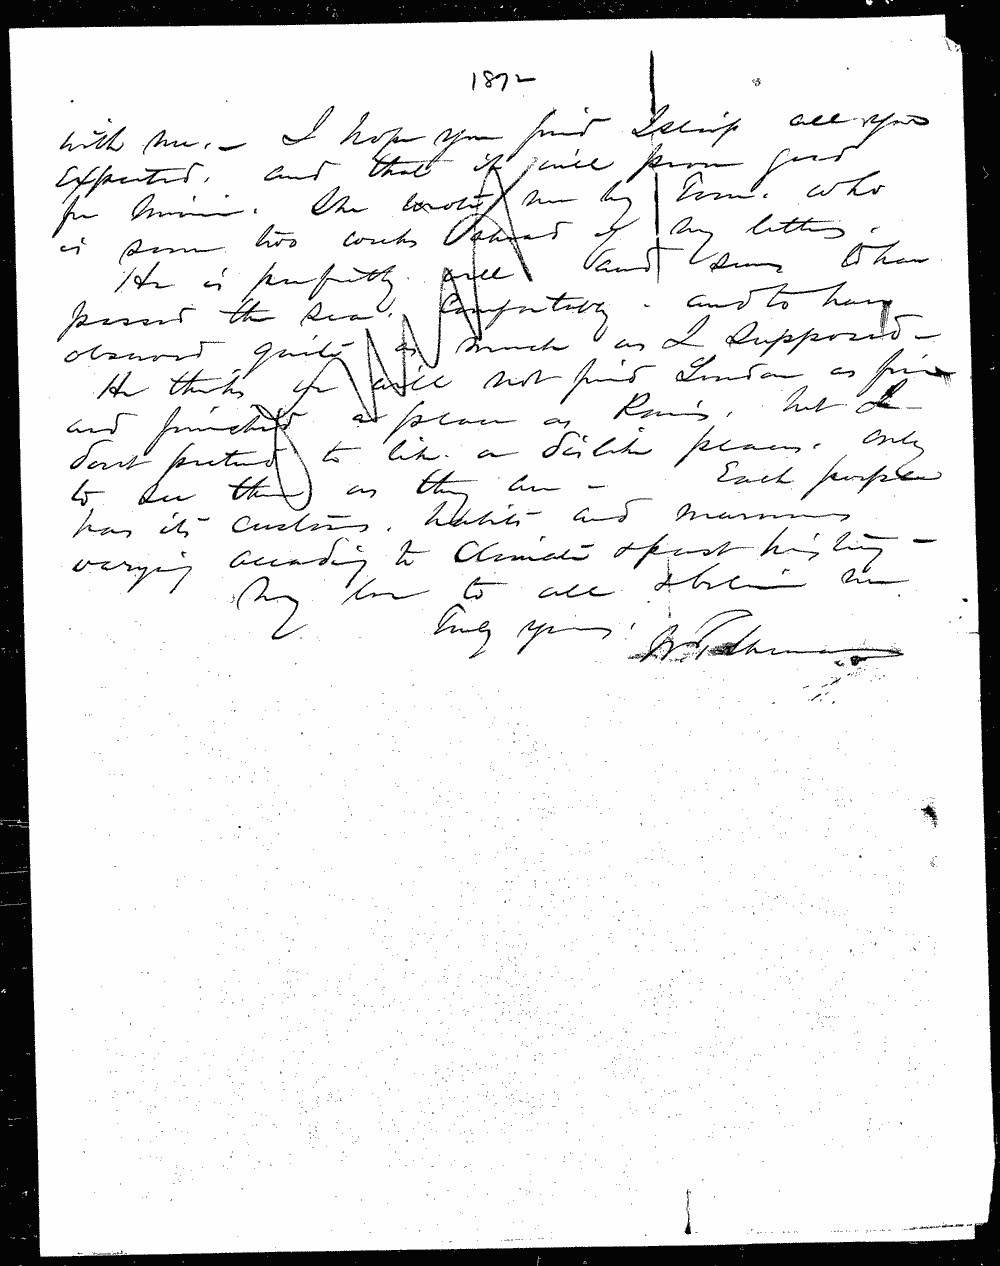 1872
with me. — I hope you find Islip all you
expected, and that it will prove good
for Minnie. She wrote me by Tom. who
is some two weeks ahead of my letters.
He is perfectly well and seems to have
passed the sea, comfortably - and to have
observed quite as much as I supposed -
He thinks we will not find London as fine
and finished a place as Paris, but I
dont pretend to like or dislike places. only
to see them as they are - Each people
has its customs, habits and manners
varying according to Climate & past history -
My love to all & believe me
Truly yours,
W. T. Sherman